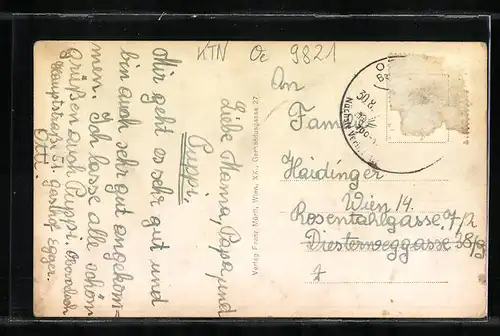 KTN Oe 9821
Liebe Mama, Papa und
Puppi,
Mir geht es sehr gut und
bin auch sehr gut angekom-
men. Ich lasse alle schön
grüßen auch Puppi.
Hauptstraße 51. Gasthof Egger.
Otti.
Verlag Franz Mörtl, Wien, XX., Gerhardusgasse 27
An
Fam
Haidinger
Wien 14.
Rosentahlgasse 7/2
Diesterweggasse 38/9
30.8.